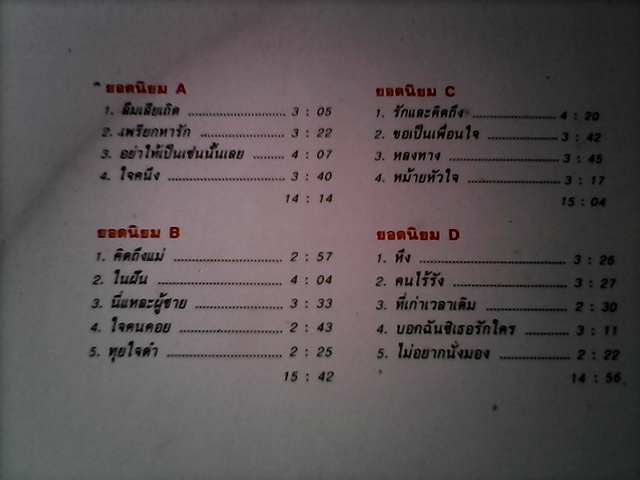 ยอดนิยม A
1. ลืมเสียเถิด ........................ 3 : 05
2. เพรียกหารัก ........................ 3 : 22
3. อย่าให้เป็นเช่นนั้นเลย ........ 4 : 07
4. ใจคนึง ........................ 3 : 40
14 : 14
ยอดนิยม B
1. คิดถึงแม่ ........................ 2 : 57
2. ในฝัน ........................ 4 : 04
3. นี่แหละผู้ชาย ........................ 3 : 33
4. ใจคนคอย ........................ 2 : 43
5. ทุยใจดำ ........................ 2 : 25
15 : 42
ยอดนิยม C
1. รักและคิดถึง ........................ 4 : 20
2. ขอเป็นเพื่อนใจ ........................ 3 : 42
3. หลงทาง ........................ 3 : 45
4. หม้ายหัวใจ ........................ 3 : 17
15 : 04
ยอดนิยม D
1. หึง ........................ 3 : 26
2. คนไร้รัง ........................ 3 : 27
3. ที่เก่าเวลาเดิม ........................ 2 : 30
4. บอกฉันซิเธอรักใคร ............ 3 : 11
5. ไม่อยากนั่งมอง .................. 2 : 22
14 : 56